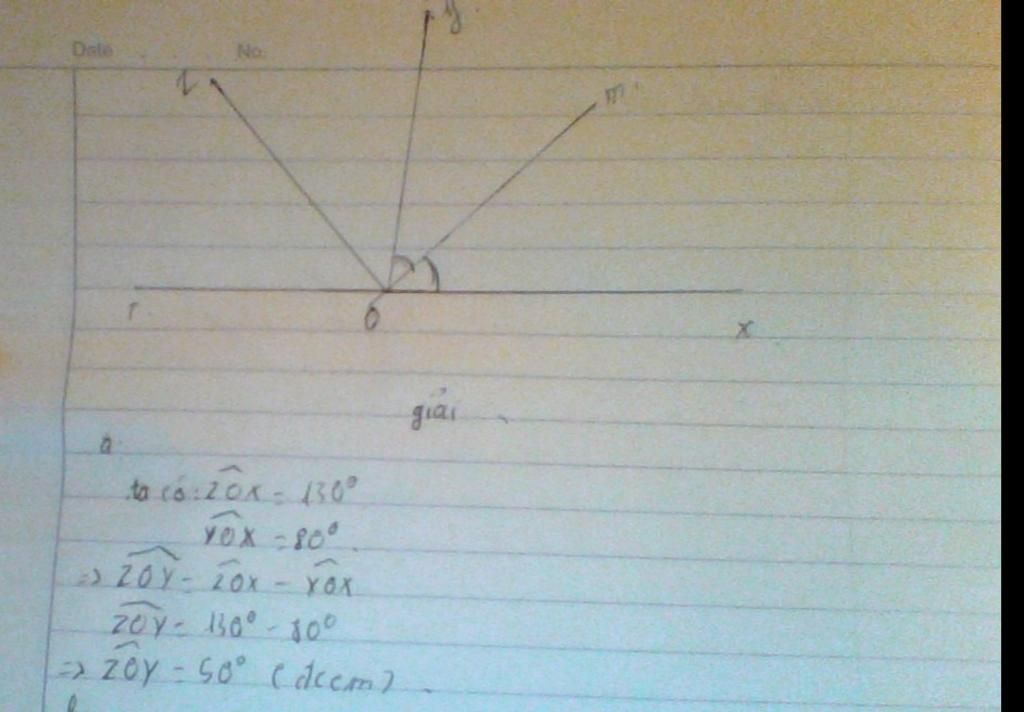 Date No.
z y m
O x
giải
a
ta có: ZOX = 130°
YOX = 80°
=> ZOY = ZOX - YOX
ZOY = 130° - 80°
=> ZOY = 50° (đccm)